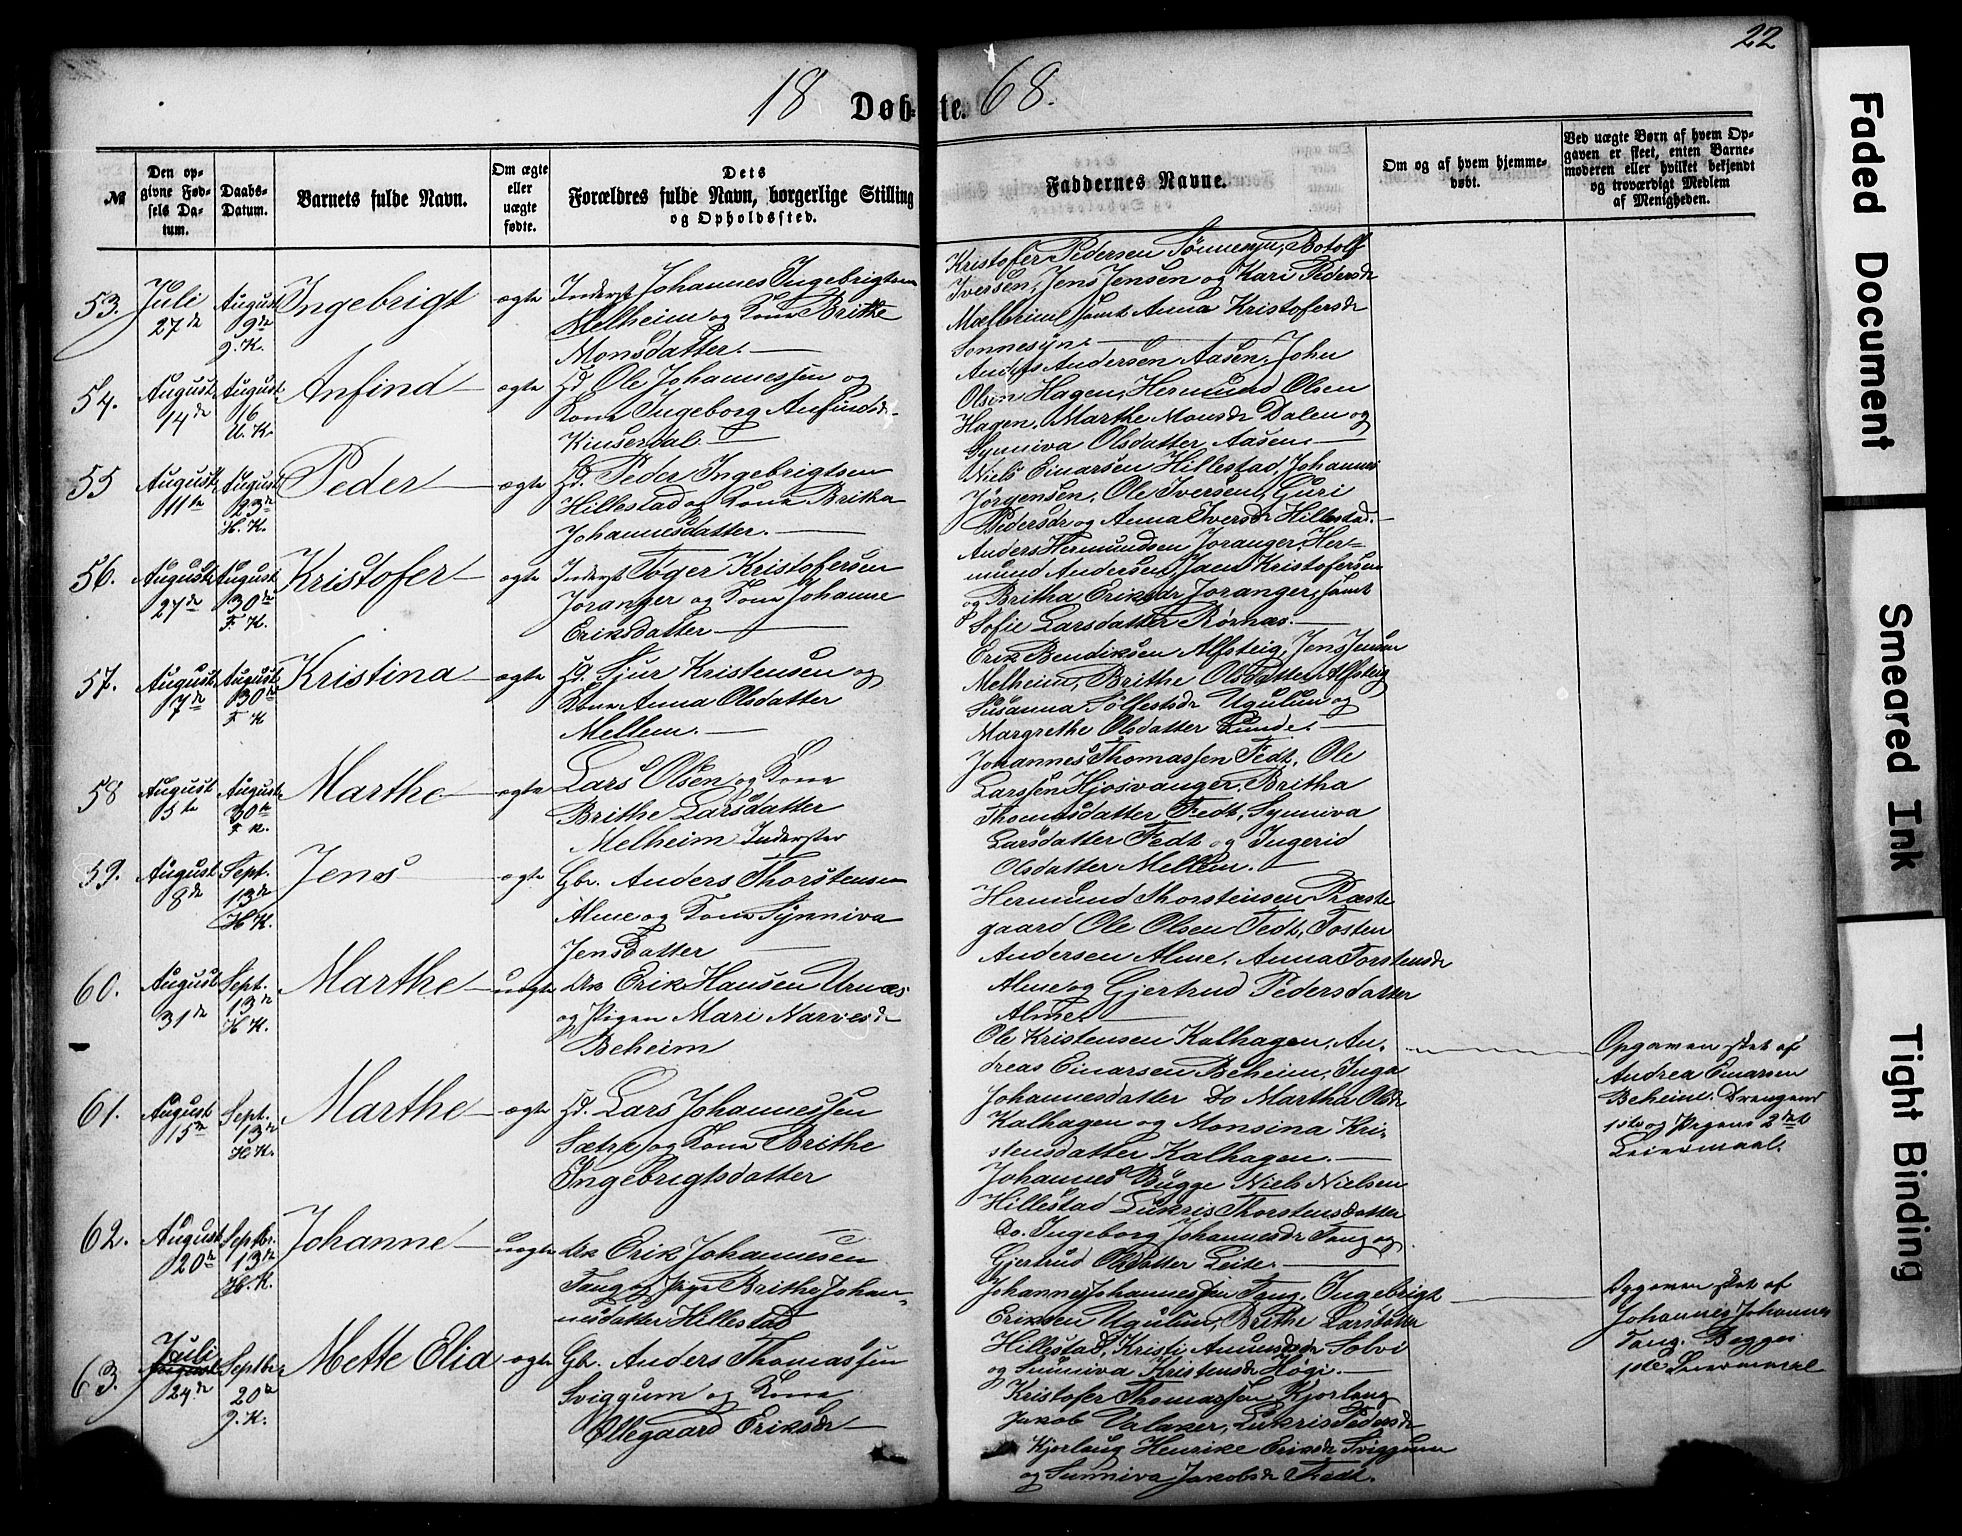 22
18 Døb- te. 68.
№
Den op-
givne Fød-
sels Da-
tum.
Daabs-
Datum.
Barnets fulde Navn.
Om ægte
eller
uægte
fødte.
Dets
Forældres fulde Navn, borgerlige Stilling
og Opholdssted.
Faddernes Navne.
Om og af hvem hjemme-
døbt.
Ved uægte Børn af hvem Op-
gaven er skeet, enten Barne-
moderen eller hvilket bekjendt
og troværdigt Medlem
af Menigheden.
53.
Juli
27de
August
9de
J. K.
Ingebrigt
ægte
Inderst Johannes Ingebrigtsen
Melheim og Kone Brithe
Monsdatter.
Kristofer Pedersen Sønnesyn, Botolf
Iversen, Jens Jensen og Kari Pedersdr
Mælheim samt Anna Kristofersdr
Sønnesyn.
54.
August
14de
August
16
U. K.
Anfind
ægte
Gd. Ole Johannessen og
Kone Ingeborg Anfindsdr
Kinserdal.
Anders Andersen Aasen, John
Olsen Hagen, Hermund Olsen
Hagen, Marthe Monsdr Dalen og
Synniva Olsdatter Aasen.
55
August
11te
August
23de
H. K.
Peder
ægte
Gd. Peder Ingebrigtsen
Hillestad og Kone Britha
Johannesdatter.
Niels Einarsen Hillestad, Johannes
Jørgensen, Ole Iversen, Guri
Pedersdr og Anna Iversdr Hillestad.
56.
August
27de
August
30de
F. K.
Kristofer
ægte
Inderst Tøger Kristofersen
Joranger og Kone Johanne
Eriksdatter
Anders Hermundsen Joranger, Her-
mund Andersen, Jaen Kristofersen
og Britha Eriksdr Joranger, samt
Sofie Larsdatter Rørnæs.
57.
August
7de
August
30de
F. K
Kristina
ægte
Gd. Sjur Kristensen og
Kone Anna Olsdatter
Mellem.
Erik Bendiksen Alfsteig, Jens Jensen
Melheim, Brithe Olsdatter Alfsteig
Susanna Sølfestsdr Ugulun og
Margrethe Olsdatter Lunde.
58
August
5te
August
30te
F. K.
Marthe
ægte
Lars Olsen og Kone
Brithe Larsdatter
Melheim Inderster
Johannes Thomassen Fedt, Ole
Larssen Hjosvanger, Britha
Thomasdatter Fedt, Synniva
Larsdatter Fedt og Ingerid
Olsdatter Mellem.
59.
August
8de
Sept.
13de
H. K.
Jens
ægte
Gbr. Anders Thorstensen
Alme og Kone Synniva
Jensdatter
Hermund Thorsteinsen Præste
gaard Ole Olsen Fedt, Tosten
Andersen Alme, Anna Torstensdr
Alme og Gjertrud Pedersdatter
Alme.
60.
August
31de
Sept.
13de
H. K.
Marthe
uægte
Erik Hansen Urnæs
og Pigen Mari Narvesdr
Beheim
Ole Kristensen Kalhagen, An-
dreas Einarsen Beheim, Inga
Johannesdatter Do Martha Olsdr
Kalhagen og Monsina Kri-
stensdatter Kalhagen.
Opgaven sket af
Andrea Einarsen
Beheim. Drengens
1ste og Pigens 2det
Leiermaal.
61.
August
15de
Sept.
13de
H. K.
Marthe
ægte
Gd. Lars Johannessen
Sætre og Kone Brithe
Ingebrigtsdatter
Johannes Bugge Niels Nielsen
Hillestad Lukris Thorstensdatter
Do. Ingeborg Johannesdr Tang og
Gjertrud Olsdatter Leite.
62.
August
20de
Septbr.
13de
H. K.
Johanne
uægte
Erik Johannesen
Tang og Pige Brithe Johan-
nesdatter Hillestad
Johannes Johannessen Tang, Ingebrigt
Eriksen Ugulun, Brithe Larsdatter
Hillestad, Kristi Amundsdr Solvi
og Sunniva Kristensdr Høgi.
Opgaven sket af
Johannes Johannes
Tang. Begges
1ste Leiermaal
63.
Juli
24de
Septbr
20de
J. K.
Mette Elia
ægte
Gbr. Anders Thomassen
Sviggum og Kone
Ollegaard Eriksdr
Kristofer Thomassen Kjorlaug
Jakob Valaker, Lukris Pedersdr
Kjorlaug Henrike Eriksdr Sviggum
og Sunniva Jakobsdr Fædt.
Faded Document
Smeared Ink
Tight Binding